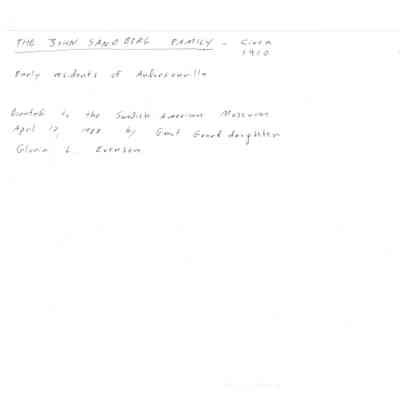 THE JOHN SANDBERG FAMILY - Circa
1910
Early residents of Andersonville
Donated to the Swedish American Museum
April 12, 1988 by Great Granddaughter
Gloria L. Evenson